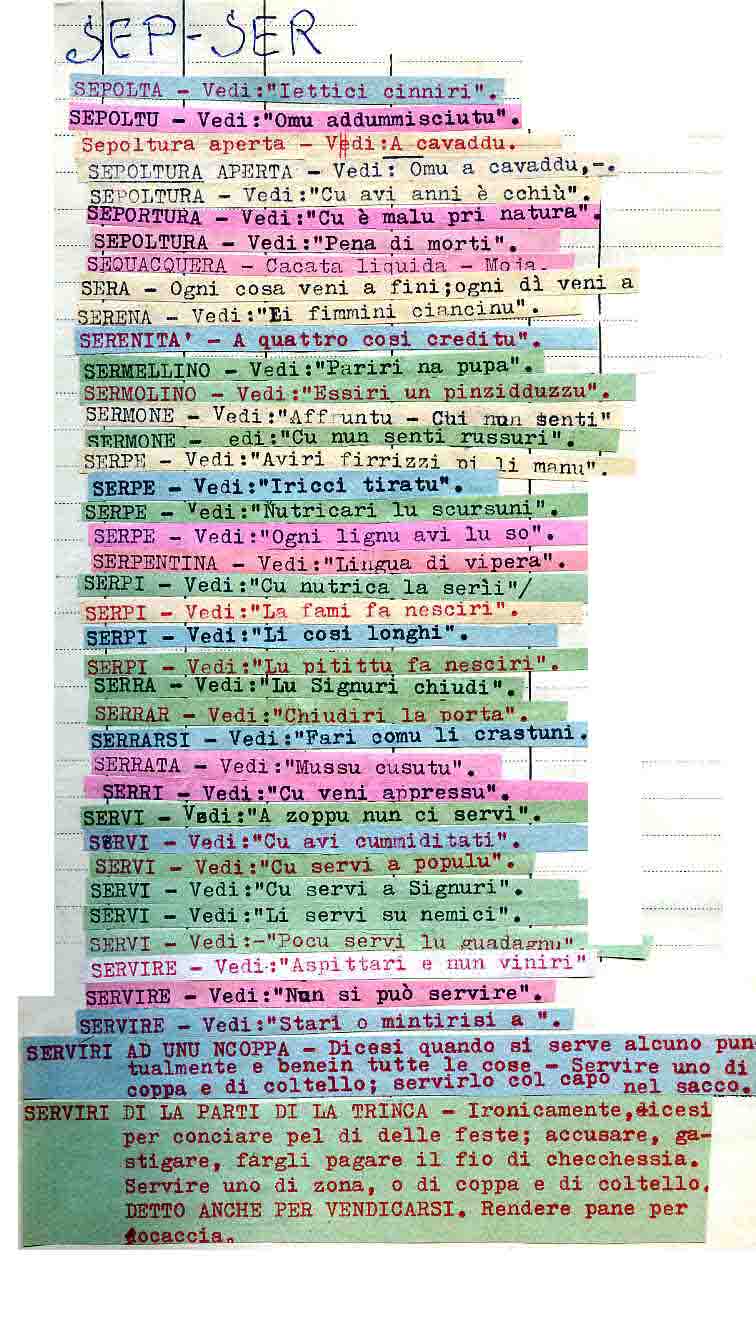 SEP-SER
SEPOLTA - Vedi:"Iettici cinniri".
SEPOLTU - Vedi:"Omu addummisciutu".
Sepoltura aperta - Vedi:A cavaddu.
SEPOLTURA APERTA - Vedi: Omu a cavaddu,-.
SEPOLTURA - Vedi:"Cu avi anni è cchiù".
SEPORTURA - Vedi:"Cu è malu pri natura".
SEPOLTURA - Vedi:"Pena di morti".
SEQUACQUERA - Cacata liquida - Moja.
SERA - Ogni cosa veni a fini;ogni dì veni a
SERENA - Vedi:"Li fimmini ciancinu".
SERENITA' - A quattro cosi creditu".
SERMELLINO - Vedi:"Pariri na pupa".
SERMOLINO - Vedi:"Essiri un pinzidduzzu".
SERMONE - Vedi:"Affruntu - Cui nun senti"
SERMONE - edi:"Cu nun senti russuri".
SERPE - Vedi:"Aviri firrizzi pi li manu".
SERPE - Vedi:"Iricci tiratu".
SERPE - Vedi:"Nutricari lu scursuni".
SERPE - Vedi:"Ogni lignu avi lu so".
SERPENTINA - Vedi:"Lingua di vipera".
SERPI - Vedi:"Cu nutrica la serìi"/
SERPI - Vedi:"La fami fa nesciri".
SERPI - Vedi:"Li cosi longhi".
SERPI - Vedi:"Lu pitittu fa nesciri".
SERRA - Vedi:"Lu Signuri chiudi".
SERRAR - Vedi:"Chiudiri la porta".
SERRARSI - Vedi:"Fari comu li crastuni.
SERRATA - Vedi:"Mussu cusutu".
SERRI - Vedi:"Cu veni appressu".
SERVI - Vedi:"A zoppu nun ci servi".
SERVI - Vedi:"Cu avi cummiditati".
SERVI - Vedi:"Cu servi a populu".
SERVI - Vedi:"Cu servi a Signuri".
SERVI - Vedi:"Li servi su nemici".
SERVI - Vedi:-"Pocu servi lu guadagnu"
SERVIRE - Vedi:"Aspittari e nun viniri"
SERVIRE - Vedi:"Nun si può servire".
SERVIRE - Vedi:"Stari o mintirisi a ".
SERVIRI AD UNU NCOPPA - Dicesi quando si serve alcuno pun
tualmente e benein tutte le cose - Servire uno di
coppa e di coltello; servirlo col capo nel sacco.
SERVIRI DI LA PARTI DI LA TRINCA - Ironicamente,dicesi
per conciare pel di delle feste; accusare, ga-
stigare, fargli pagare il fio di checchessia.
Servire uno di zona, o di coppa e di coltello.
DETTO ANCHE PER VENDICARSI. Rendere pane per
focaccia.